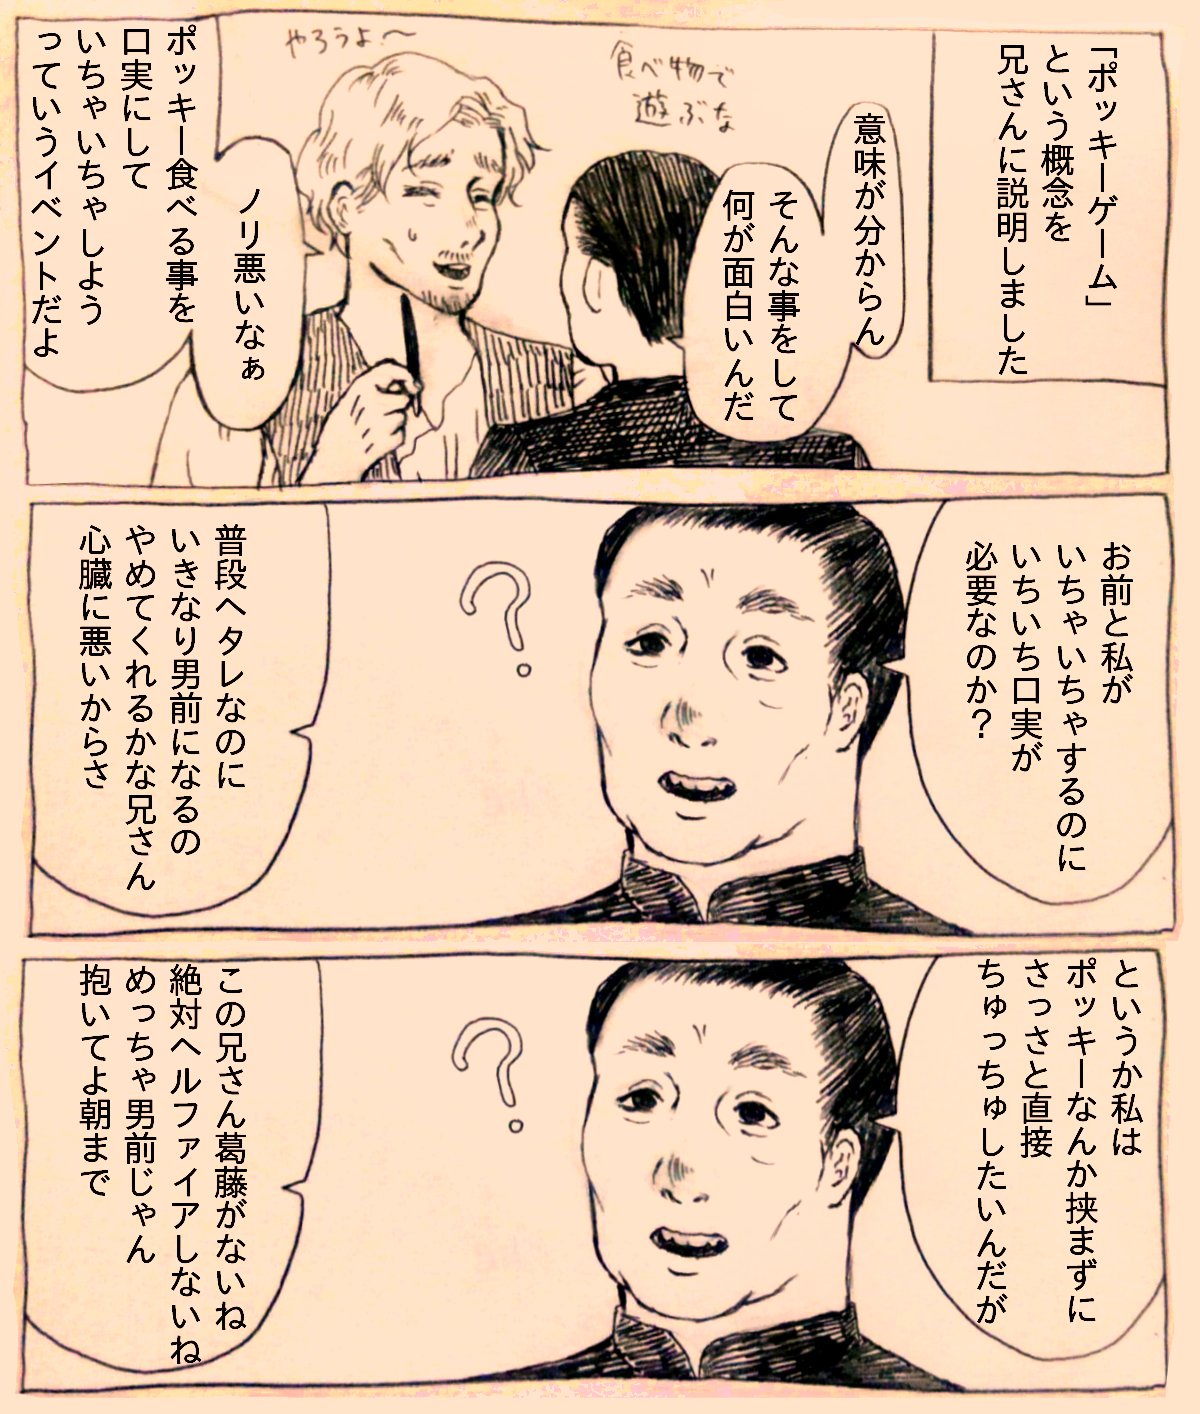 「ポッキーゲーム」
という概念を
兄さんに説明しました
意味が分からん
そんな事をして
何が面白いんだ
食べ物で
遊ぶな
やろうよ〜
ノリ悪いなぁ
ポッキー食べる事を
口実にして
いちゃいちゃしよう
っていうイベントだよ
お前と私が
いちゃいちゃするのに
いちいち口実が
必要なのか？
?
普段ヘタレなのに
いきなり男前になるの
やめてくれるかな兄さん
心臓に悪いからさ
というか私は
ポッキーなんか挟まずに
さっさと直接
ちゅっちゅしたいんだが
?
この兄さん葛藤がないね
絶対ヘルファイアしないね
めっちゃ男前じゃん
抱いてよ朝まで